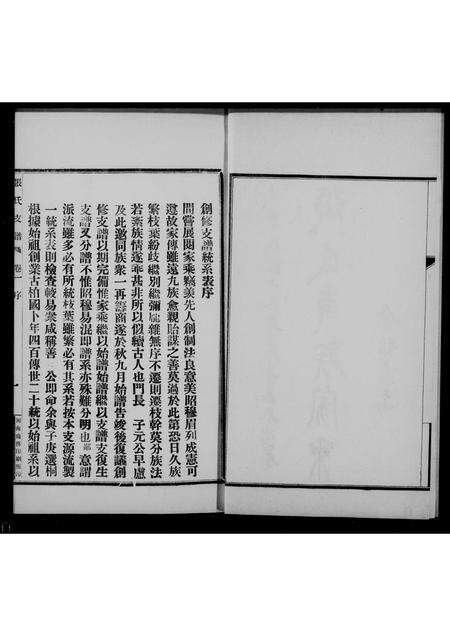 創修支譜統系表序
間嘗展閱家乘竊羨先人創制法良意美昭穆眉列成憲可
遵故家傳雖遠九族愈親貽謀之善莫過於此第恐日久族
繁枝葉紛歧繼別繼彌龐雜無序不遷則遷枝幹莫分族法
若紊族情遂乖甚非所以似續古人也門長 子元公早慮
及此邀同族衆一再籌商遂於秋九月始譜告竣後復議創
修支譜以期完備惟家乘繼以始譜始譜繼以支譜支復生
支譜又分譜不惟昭穆易混即譜系亦殊難分明也 意謂
派流雖多必有所統枝葉雖繁必有其系若按本支源流製
一統系表則檢查較易衆咸稱善 公即命余與子庚選桐
根據始祖創業古柏國卜年四百傳世二十統以始祖系以
張氏支譜 卷一 序
一